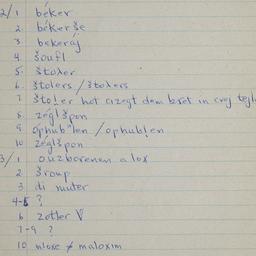 2/1 béker
2. békerše
3. bekeráj
4. šoufl
5. štoler
6. štolers / štolers
7. štoler hot cizegt dem bret in cvej tejl
8. zéglšpon
9. óphub'len / ophublen
10 zéglšpon
3/1. ouzborenen a lox
2. šroup
3. di muter
4-5 ?
6 zetler V
7-9 ?
10 mloxe ≠ maloxim